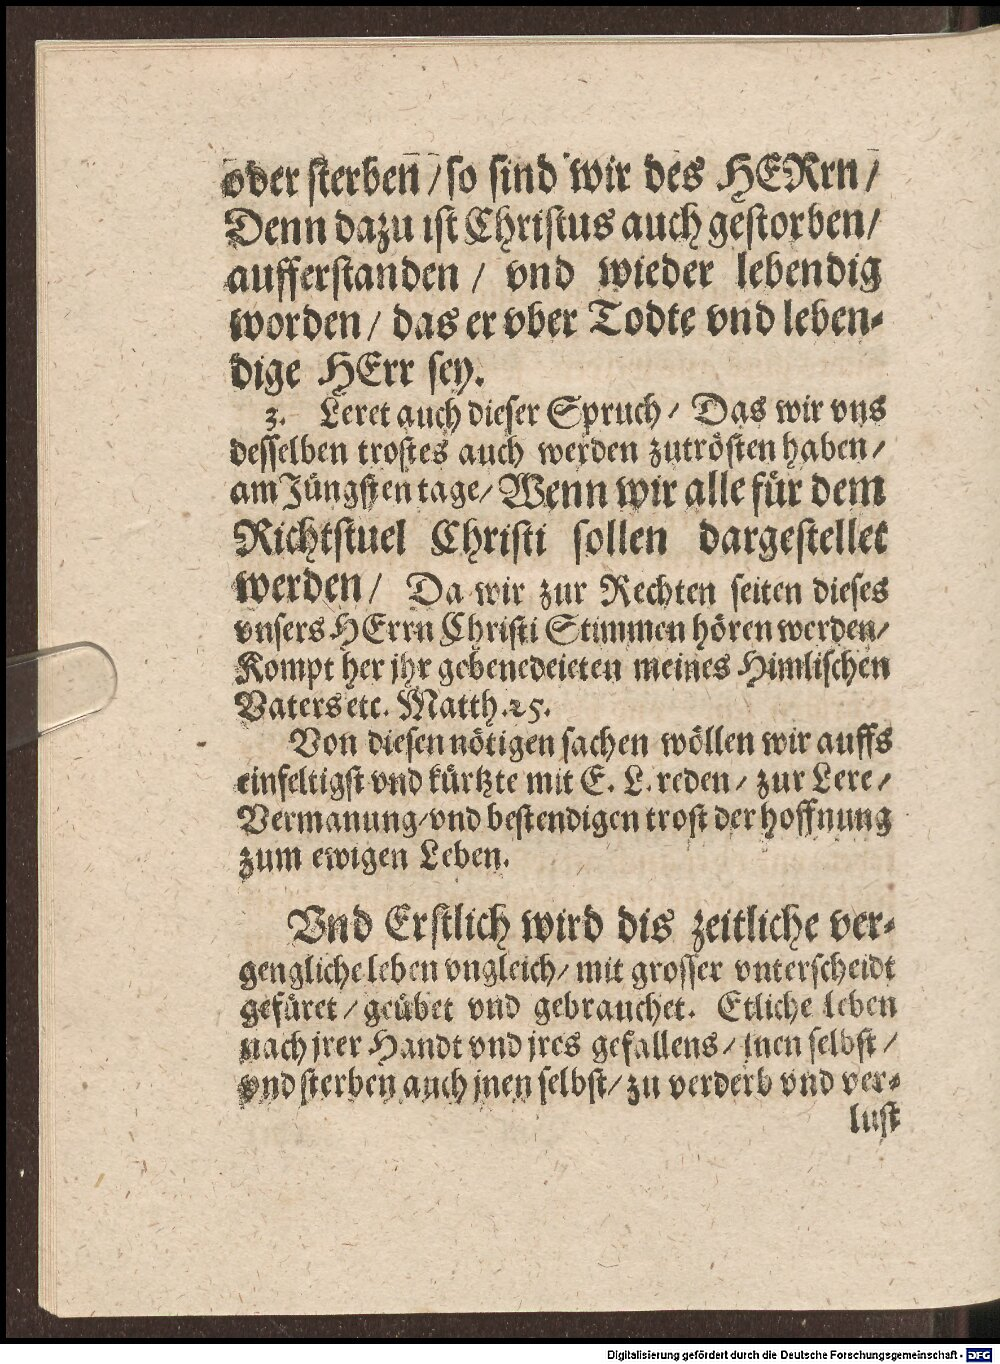 oder sterben / so sind wir des HERrn /
Denn dazu ist Christus auch gestorben /
aufferstanden / vnd wieder lebendig
worden / das er vber Todte vnd leben-
dige HErr sey.
3. Leret auch dieser Spruch / Das wir vns
desselben trostes auch werden zutrösten haben /
am Jüngsten tage / Wenn wir alle für dem
Richtstuel Christi sollen dargestellet
werden / Da wir zur Rechten seiten dieses
vnsers HErrn Christi Stimmen hören werden /
Kompt her jhr gebenedeieten meines Himlischen
Vaters etc. Matth. 25.
Von diesen nötigen sachen wöllen wir auffs
einfeltigst vnd kürtzte mit E. L. reden / zur Lere /
Vermanung / vnd bestendigen trost der hoffnung
zum ewigen Leben.
Vnd Erstlich wird dis zeitliche ver-
gengliche leben vngleich / mit grosser vnterscheidt
gefüret / geübet vnd gebrauchet. Etliche leben
nach jrer Handt vnd jres gefallens / jnen selbst /
vnd sterben auch jnen selbst / zu verderb vnd ver-
lust
Digitalisierung gefördert durch die Deutsche Forschungsgemeinschaft - DFG